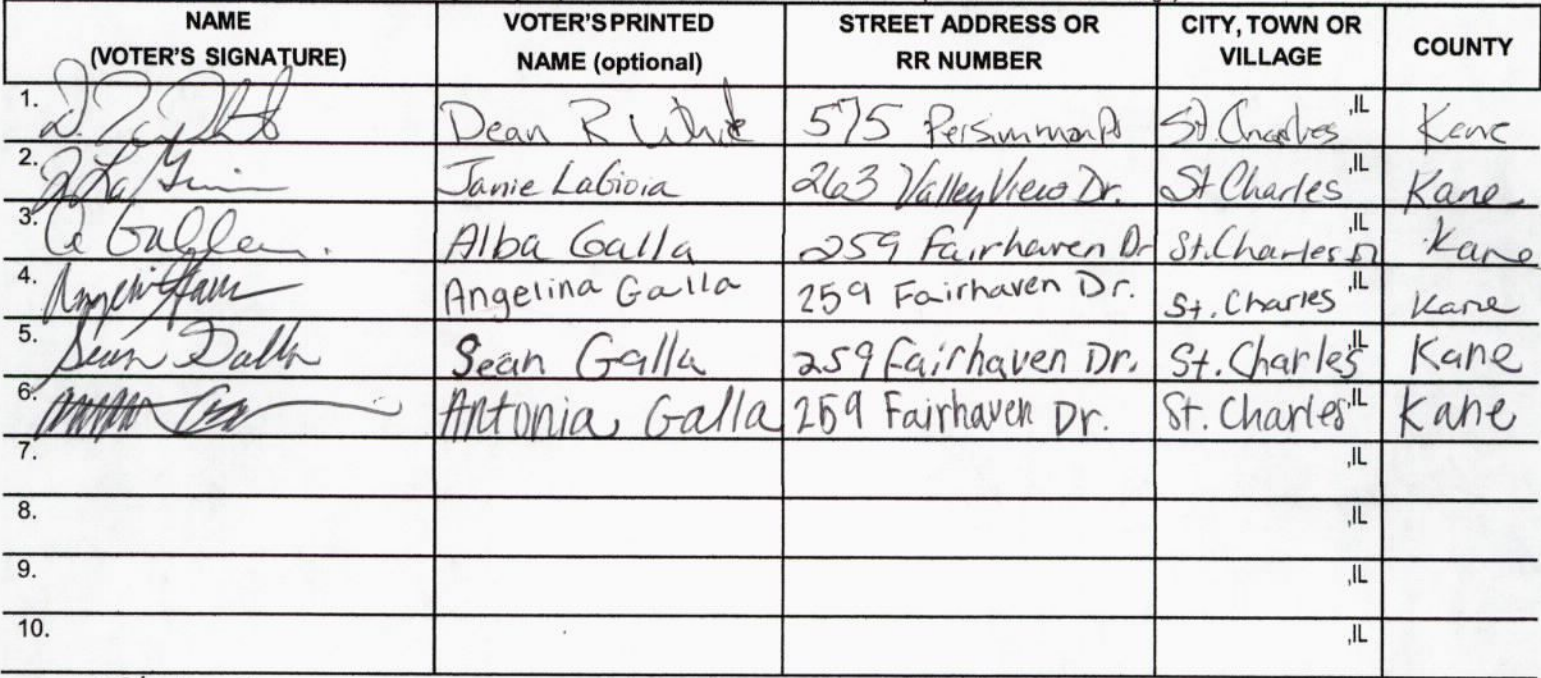 NAME (VOTER'S SIGNATURE) VOTER'S PRINTED NAME (optional) STREET ADDRESS OR RR NUMBER CITY, TOWN OR VILLAGE COUNTY
1. Dean R White 575 St. Charles ,IL Kane
2. Janie LaGioia 263 Valley View Dr. St Charles ,IL Kane
3. Alba Galla 259 Fairhaven Dr St. Charles ,IL Kane
4. Angelina Galla 259 Fairhaven Dr. St. Charles ,IL Kane
5. Sean Galla 259 Fairhaven Dr. St. Charles ,IL Kane
6. Antonia Galla 259 Fairhaven Dr. St. Charles ,IL Kane
7. ,IL
8. ,IL
9. ,IL
10. ,IL